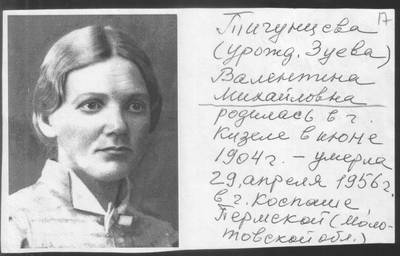 17
Тигунцева
(урожд. Зуева)
Валентина
Михайловна
родилась в г.
Кизеле в июне
1904г. – умерла
29, апреля 1956г.
в г. Коспаше
Пермской (Моло-
товской обл.)